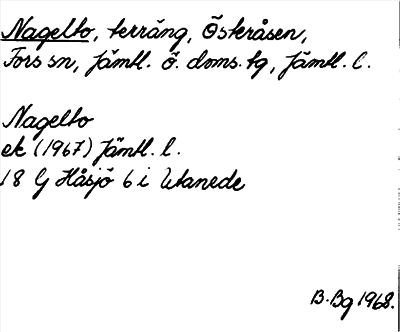 Nagelbo, terräng, Österåsen,
Fors sn, Jämtl. ö. doms. tg, Jämtl. l.
Nagelbo
ek (1967) Jämtl. l.
18 G Håsjö 6 i Utanede
B. Bg 1968.